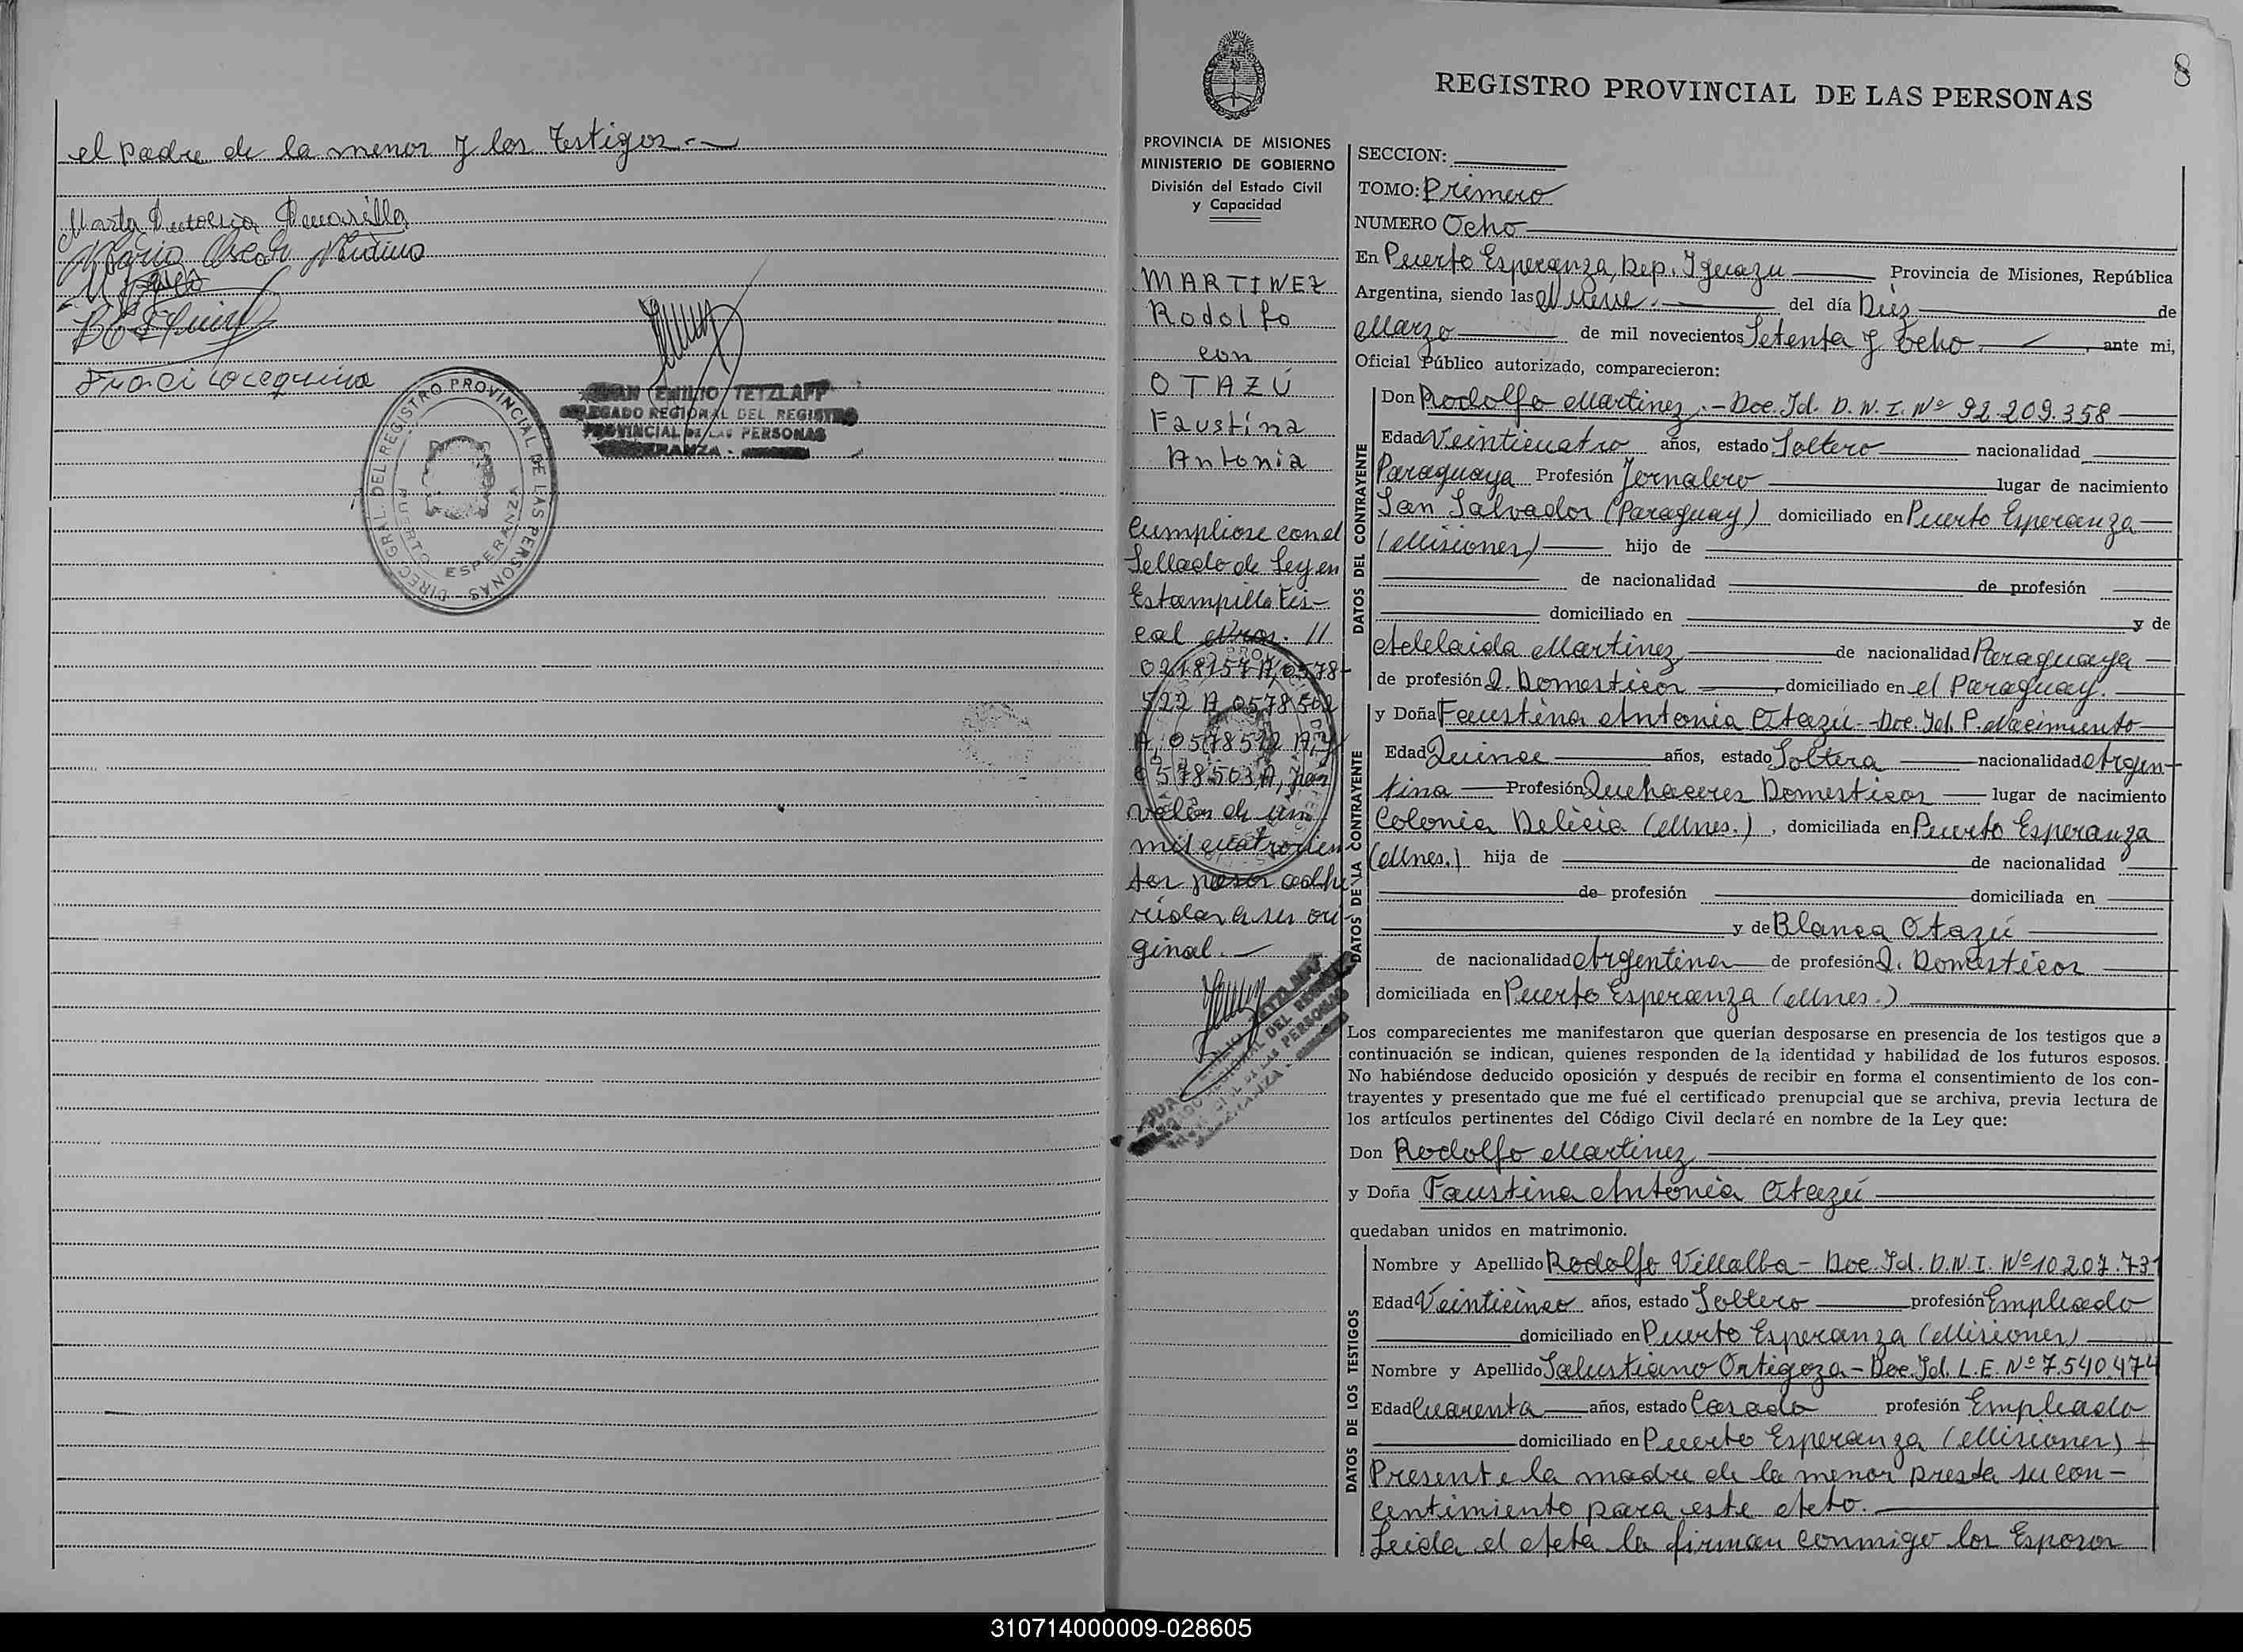 el padre de la menor y los testigos.-
JUAN EMILIO TETZLAFF
DELEGADO REGIONAL DEL REGISTRO
PROVINCIAL DE LAS PERSONAS
ESPERANZA -
DIREC. GRAL. DEL REGISTRO PROVINCIAL DE LAS PERSONAS
PUERTO ESPERANZA
8
REGISTRO PROVINCIAL DE LAS PERSONAS
PROVINCIA DE MISIONES
MINISTERIO DE GOBIERNO
División del Estado Civil
y Capacidad
MARTINEZ
Rodolfo
con
OTAZÚ
Faustina
Antonia
Cumpliose con el
Sellado de Ley en
Estampilla Fis-
cal Nros. //
0218157 A, 0578-
522 A 0578502
A, 0578512 A, y
0578503 A, por
valor de un
mil cuatrocien
tos pesos adhe
ridas a su ori
ginal.-
SECCION:
TOMO: Primero
NUMERO Ocho
En Puerto Esperanza, Dep. Iguazu Provincia de Misiones, República
Argentina, siendo las del día Diez de
Marzo de mil novecientos Setenta y Ocho.- ante mi,
Oficial Público autorizado, comparecieron:
DATOS DEL CONTRAYENTE
Don Rodolfo Martinez.- Doc. Id. D.N.I. Nº 92.209.358
Edad Veinticuatro años, estado Soltero nacionalidad
Paraguaya Profesión Jornalero lugar de nacimiento
San Salvador (Paraguay) domiciliado en Puerto Esperanza
(Misiones) hijo de
de nacionalidad de profesión
domiciliado en y de
Adelaida Martinez de nacionalidad Paraguaya
de profesión Q. Domesticos, domiciliado en el Paraguay.
DATOS DE LA CONTRAYENTE
y Doña Faustina Antonia Otazú - Doc. Id. P. Nacimiento
Edad Quince años, estado Soltera nacionalidad Argen-
tina Profesión Quehaceres Domesticos lugar de nacimiento
Colonia Delicia (Mnes.), domiciliada en Puerto Esperanza
(Mnes.) hija de de nacionalidad
de profesión domiciliada en
y de Blanca Otazú
de nacionalidad Argentina de profesión Q. Domesticos
domiciliada en Puerto Esperanza (Mnes.)
Los comparecientes me manifestaron que querían desposarse en presencia de los testigos que a
continuación se indican, quienes responden de la identidad y habilidad de los futuros esposos.
No habiéndose deducido oposición y después de recibir en forma el consentimiento de los con-
trayentes y presentado que me fué el certificado prenupcial que se archiva, previa lectura de
los artículos pertinentes del Código Civil declaré en nombre de la Ley que:
Don Rodolfo Martinez
y Doña Faustina Antonia Otazú
quedaban unidos en matrimonio.
DATOS DE LOS TESTIGOS
Nombre y Apellido Rodolfo Villalba - Doc. Id. D.N.I. Nº 10.207.731
Edad Veinticinco años, estado Soltero profesión Empleado
domiciliado en Puerto Esperanza (Misiones)
Nombre y Apellido Salustiano Ortigoza - Doc. Id. L.E. Nº 7.540.474
Edad Cuarenta años, estado Casado profesión Empleado
domiciliado en Puerto Esperanza (Misiones)
Presente la madre de la menor presta su con-
centimiento para este Acto.
Leida el Acta la firman conmigo los Esposos
310714000009-028605